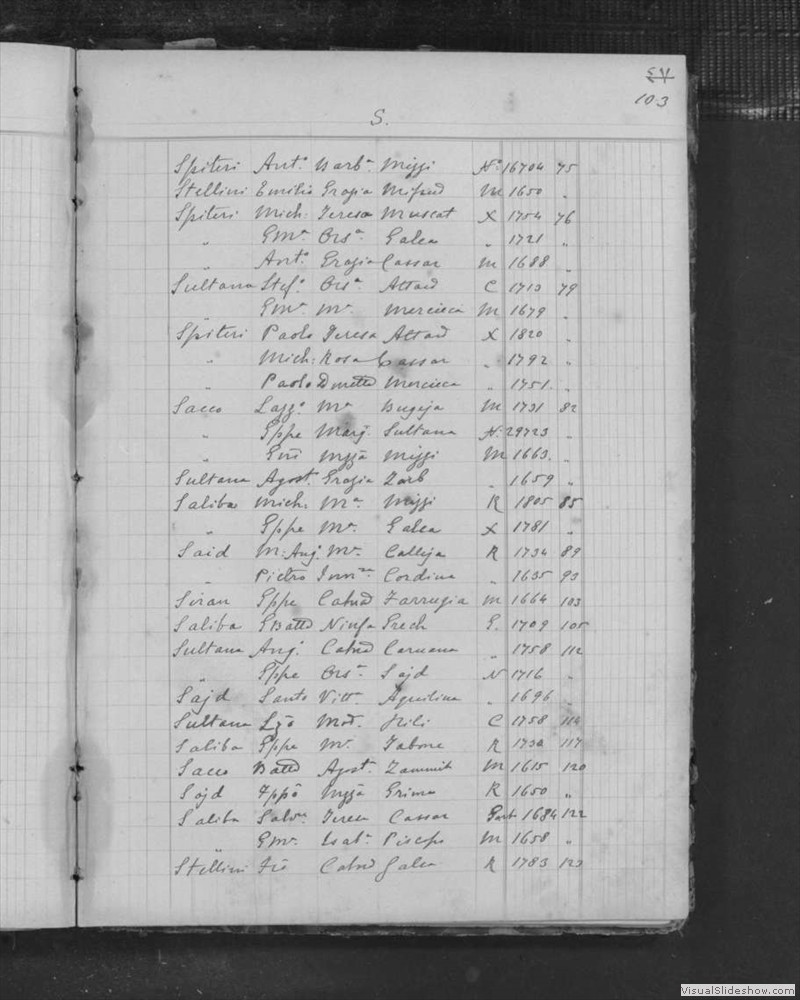 103
S.
Spiteri Ant.º Barb.ª Mizzi N.º 16704 75
Stellini Emilio Grazia Mifsud M 1650 "
Spiteri Mich: Teresa Muscat X 1754 76
" Gm.ª Ors.ª Galea " 1721 "
" Ant.º Grazia Cassar M 1688 "
Sultana Stef.º Ors.ª Attard C 1713 79
" Gm.ª M.ª Mercieca M 1679 "
Spiteri Paolo Teresa Attard X 1820 "
" Mich: Rosa Cassar " 1792 "
" Paolo Dmetta Mercieca " 1751. "
Sacco Lazz.º M.ª Bugeja M 1731 82
" Gppe Marg. Sultana N. 29723 "
" Mzzã Mizzi M 1663. "
Sultana Agost. Grazia Zarb " 1659 "
Saliba Mich. M.ª Mizzi R 1805 85
" Gppe M.ª Galea X 1781 "
Said M. Ang. M.ª Calleja R 1734 89
" Pietro Cordina " 1635 93
Siran Gppe Catnd Farrugia M 1664 103
Saliba GBatta Ninfa Grech G. 1709 105
Sultana Ang. Catnd Caruana " 1758 112
" Gppe Ors.ª Sajd N 1716 "
Sajd Santo Vitt.ª Aquilina " 1696 "
Sultana Lzõ Mad. Hili C 1758 114
Saliba Gppe M.ª Tabone R 1730 117
Sacco Batta Agost.ª Zammit M 1615 120
Sajd Fppõ Mzzã Grima R 1650 "
Saliba Salv.re Teresa Cassar 1684 122
" Gm.ª Isab.ª M 1658 "
Stellini Frõ Catnd Galea R 1783 123
VisualSlideshow.com